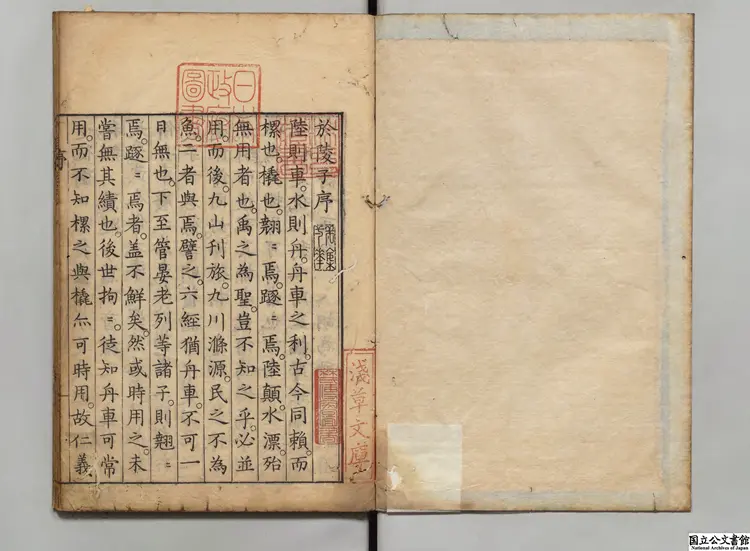 於陵子序
陸則車。水則舟。舟車之利。古今同賴。而
樏也。橇也。翹〻焉。蹞〻焉。陸顛水漂。殆
無用者也。禹之為聖。豈不知之乎。必並
用。而後。九山刊旅。九川滌源。民之不為
魚。二者與焉。譬之。六經猶舟車。不可一
日無也。下至管晏老列等諸子。則翹〻
焉。〻焉者。盖不鮮矣。然或時用之。未
嘗無其績也。後世拘〻。徒知舟車可常
用。而不知樏之與橇亦可時用。故仁義
序
日本政府圖書
淺草文庫
国立公文書館
National Archives of Japan